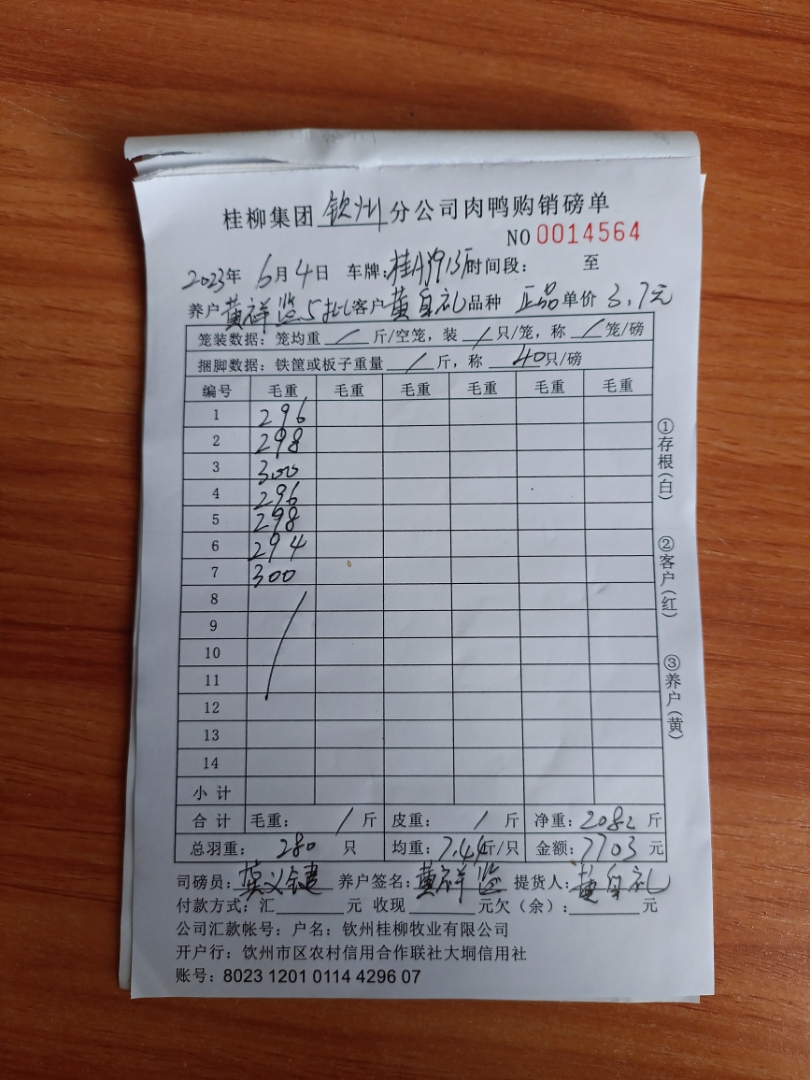 桂柳集团 钦州 分公司肉鸭购销磅单
NO 0014564
2023年 6月4日 车牌: 时间段: 至
养户 黄祥 5批 客户 黄自礼 品种 正品 单价 3.7元
笼装数据: 笼均重 / 斤/空笼, 装 / 只/笼, 称 / 笼/磅
捆脚数据: 铁筐或板子重量 / 斤, 称 40 只/磅
编号 毛重 毛重 毛重 毛重 毛重 毛重
1 296
2 298
3 300
4 296
5 298
6 294
7 300
8
9
10
11
12
13
14
小计
合计 毛重: / 斤 皮重: / 斤 净重: 2082 斤
总羽重: 280 只 均重: 7.44 斤/只 金额: 7703 元
司磅员: 莫义键 养户签名: 黄祥 提货人: 黄自礼
付款方式: 汇 元 收现 元欠(余): 元
公司汇款帐号: 户名: 钦州桂柳牧业有限公司
开户行: 钦州市区农村信用合作联社大垌信用社
账号: 8023 1201 0114 4296 07
①存根(白)
②客户(红)
③养户(黄)